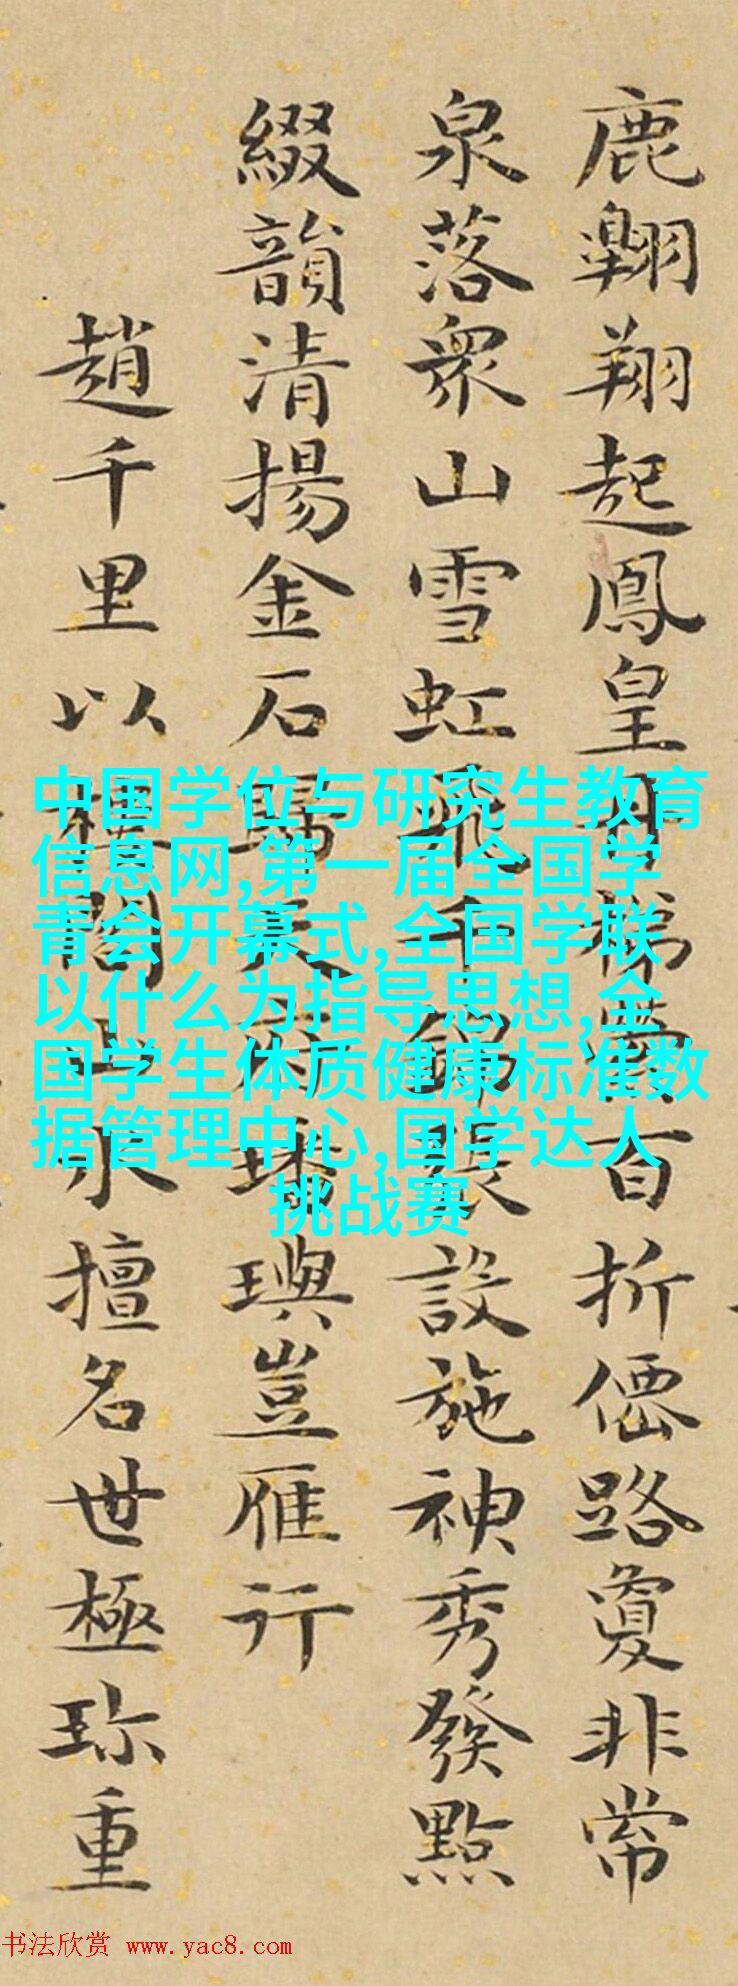 鹿翱翔起鳳皇梯百折僊路夐非常
泉落衆山雪虹飛千錦張設施神秀發點
綴韻清揚金石璠璵豈雁行
趙千里以樓閣山水擅名世極珍重
中国学位与研究生教育
信息网,第一届全国学
青会开幕式,全国学联
以什么为指导思想,全
国学生体质健康标准数
据管理中心,国学达人
挑战赛
书法欣赏 www.yac8.com